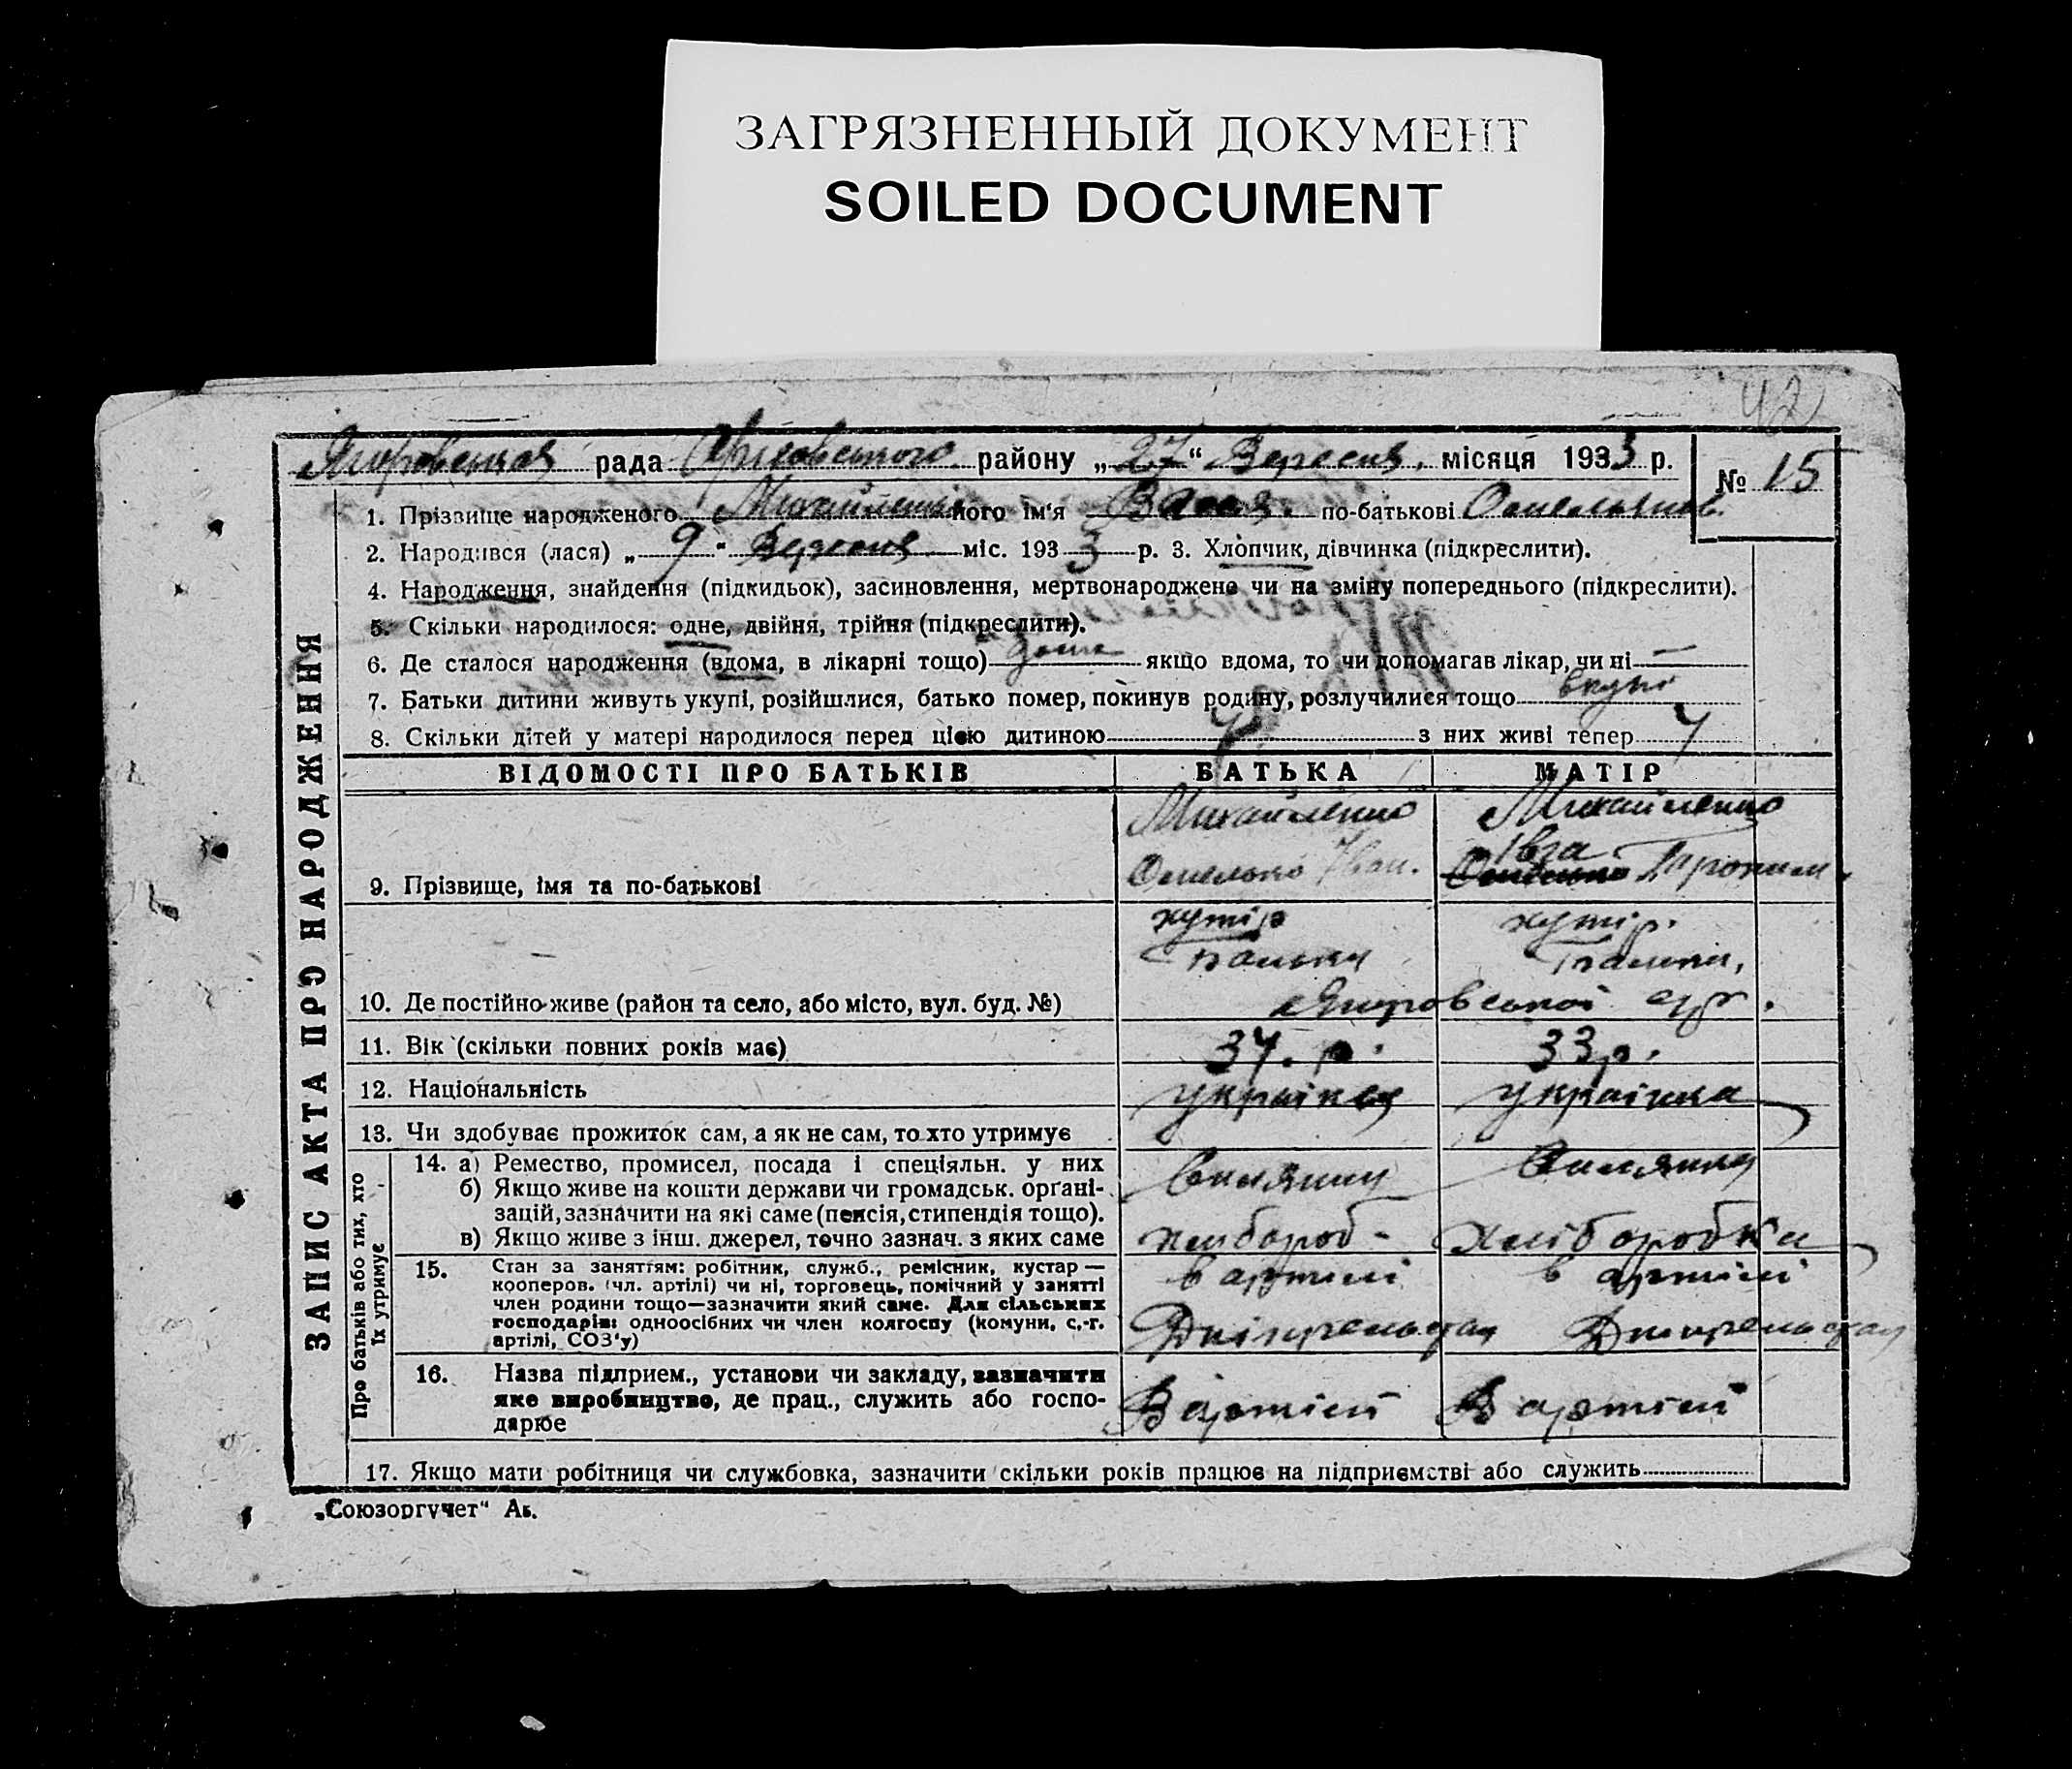 ЗАГРЯЗНЕННЫЙ ДОКУМЕНТ
SOILED DOCUMENT
42
рада району „27“ Вересня місяця 1933 р.
№ 15
1. Прізвище народженого Михайленко його ім'я Вася по-батькові Омельянов.
2. Народився (лася) „9“ Вересня міс. 1933 р. 3. Хлопчик, дівчинка (підкреслити).
4. Народження, знайдення (підкидьок), засиновлення, мертвонароджене чи на зміну попереднього (підкреслити).
5. Скільки народилося: одне, двійня, трійня (підкреслити).
6. Де сталося народження (вдома, в лікарні тощо) дома якщо вдома, то чи допомагав лікар, чи ні —
7. Батьки дитини живуть укупі, розійшлися, батько помер, покинув родину, розлучилися тощо вкупі
8. Скільки дітей у матері народилося перед цією дитиною 4 з них живі тепер 4
ЗАПИС АКТА ПРО НАРОДЖЕННЯ
ВІДОМОСТІ ПРО БАТЬКІВ БАТЬКА МАТІР
Михайленко Михайленко
Івга
9. Прізвище, імя та по-батькові Омелько Іван. Трохим.
хутір хутір.
10. Де постійно живе (район та село, або місто, вул. буд. №)
11. Вік (скільки повних років має) 37. р. 33 р.
12. Національність українця українка
13. Чи здобуває прожиток сам, а як не сам, то хто утримує
Про батьків або тих, хто їх утримує
14. а) Ремество, промисел, посада і спеціяльн. у них
б) Якщо живе на кошти держави чи громадськ. органі-
зацій, зазначити на які саме (пенсія, стипендія тощо).
в) Якщо живе з інш. джерел, точно зазнач. з яких саме хлібороб- хліборобка
15. Стан за заняттям: робітник, служб., ремісник, кустар — в артілі в артілі
кооперов. (чл. артілі) чи ні, торговець, помічний у занятті
член родини тощо—зазначити який саме. Для сільських
господарів: одноосібних чи член колгоспу (комуни, с.-г.
артілі, СОЗ'у) Дніпрельстан Дніпрельстан
16. Назва підприєм., установи чи закладу, зазначити
яке виробництво, де прац., служить або госпо- В артілі В артілі
дарює
17. Якщо мати робітниця чи службовка, зазначити скільки років працює на підприємстві або служить
„Союзоргучет“ Ак.